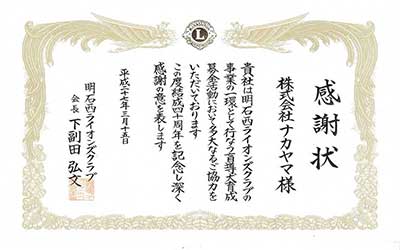 感謝状
株式会社ナカヤマ様
貴社は明石西ライオンズクラブの
事業の一環として行なう盲導犬育成
募金活動において多大なるご協力を
いただいております
この度結成四十周年を記念し深く
感謝の意を表します
平成二十七年三月十五日
明石西ライオンズクラブ
会長 下副田 弘文
L